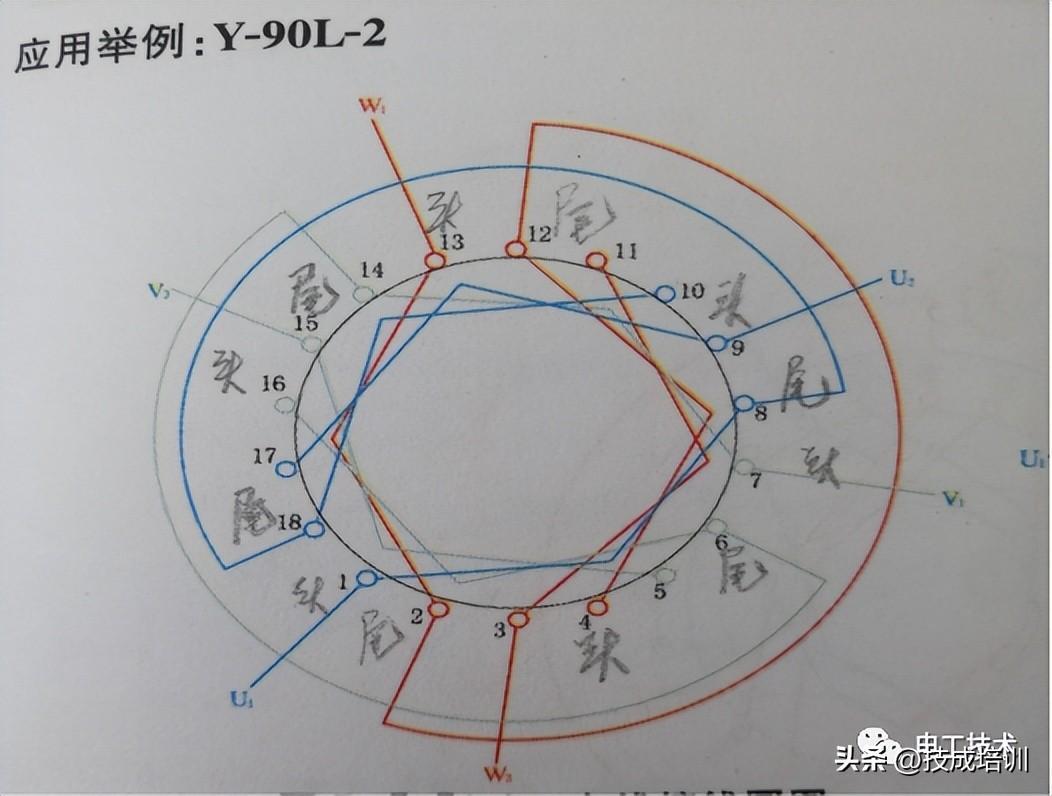 应用举例:Y-90L-2
W₁
头 12 尾
13 11
14 10
尾 头 U₂
V₂
15 9
头 16 尾
8
17 头
7 U₁
尾 18 V₁
6
1 5 尾
头 2 3 4
尾 头
U₁
W₂
电工技术
头条 @技成培训